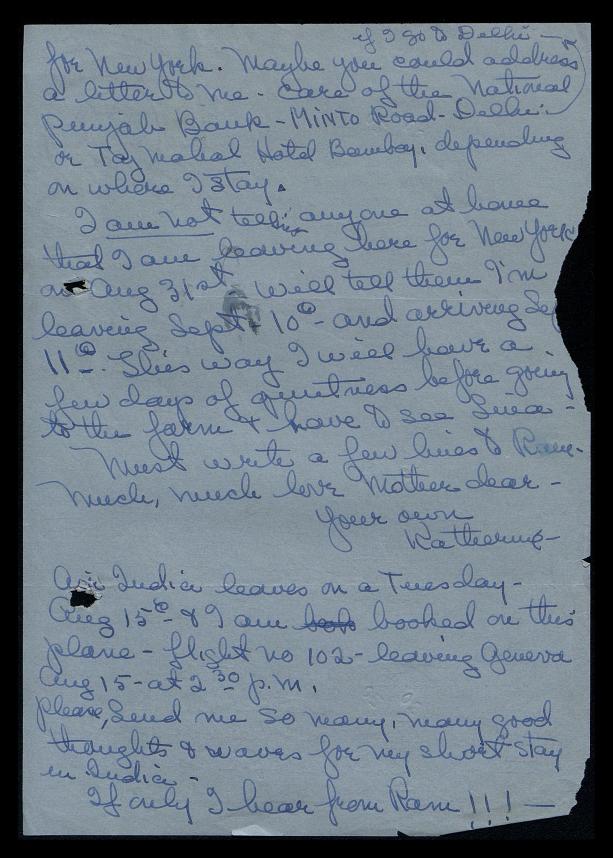 if I go to Delhi -
for New York. Maybe you could address
a letter to me - care of the National
Punjab Bank - MINTO Road - Delhi -
or Taj Mahal Hotel Bombay, depending
on where I stay.
I am not telling anyone at home
that I am leaving here for New York
on Aug 31st will tell them I'm
leaving Sept 10th - and arriving Sep
11th. This way I will have a
few days of quietness before going
to the farm & have to see
Must write a few lines to
Much, much love Mother dear -
Your own
Katherine -
Air India leaves on a Tuesday -
Aug 15th - & I am booked on this
plane - flight no 102 - leaving Geneva
Aug 15 - at 2 30 p.m.
please, send me so many, many good
thoughts & waves for my short stay
in India -
If only I hear from Ram !!! -